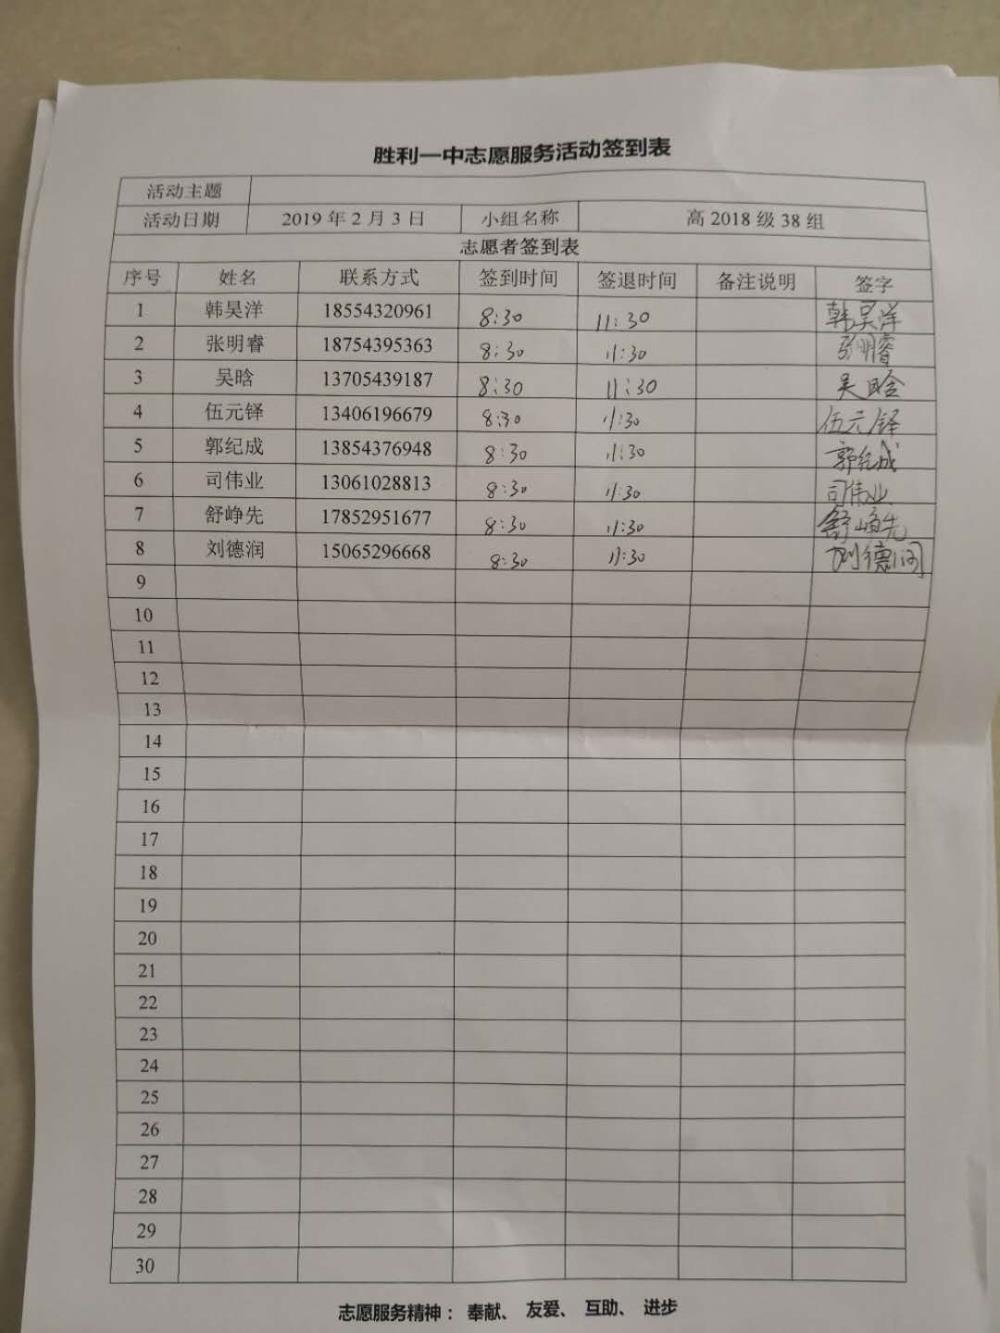 胜利一中志愿服务活动签到表
活动主题
活动日期 2019 年 2 月 3 日 小组名称 高 2018 级 38 组
志愿者签到表
序号 姓名 联系方式 签到时间 签退时间 备注说明 签字
1 韩昊洋 18554320961 8:30 11:30 韩昊洋
2 张明睿 18754395363 8:30 11:30 张明睿
3 吴晗 13705439187 8:30 11:30 吴晗
4 伍元铎 13406196679 8:30 11:30 伍元铎
5 郭纪成 13854376948 8:30 11:30 郭纪成
6 司伟业 13061028813 8:30 11:30 司伟业
7 舒峥先 17852951677 8:30 11:30 舒峥先
8 刘德润 15065296668 8:30 11:30 刘德润
9
10
11
12
13
14
15
16
17
18
19
20
21
22
23
24
25
26
27
28
29
30
志愿服务精神： 奉献、 友爱、 互助、 进步